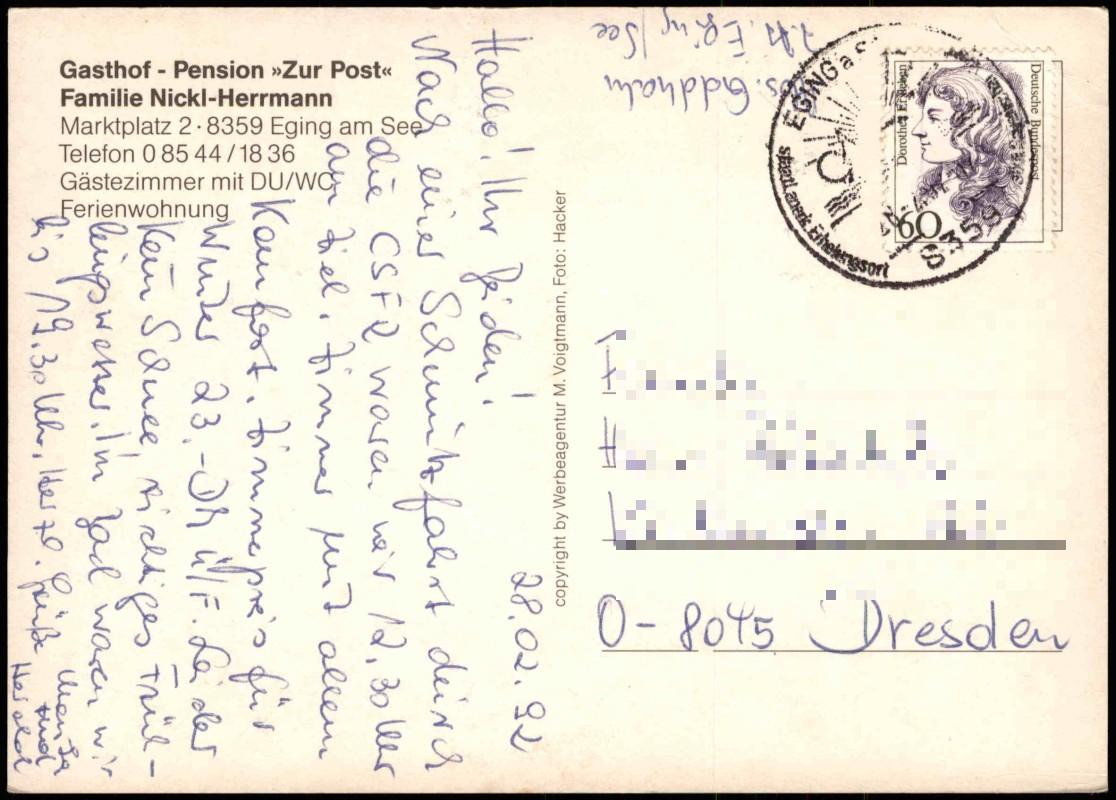 Gasthof - Pension »Zur Post«
Familie Nickl-Herrmann
Marktplatz 2 · 8359 Eging am See
Telefon 0 85 44 / 18 36
Gästezimmer mit DU/WC
Ferienwohnung
28.02.92
Hallo! Ihr Beiden!
Nach einer Schmitzfahrt durch
die CSFR waren wir 12.30 Uhr
am Ziel. Zimmer mit allem
Komfort. Zimmerpreis für
Winter 23.- DM Ü/F. Leider
kein Schnee, richtiges Früh-
lingswetter. Im Bad waren wir
bis 19.30 Uhr. Herzl. Grüße
und
Harald
copyright by Werbeagentur M. Voigtmann, Foto: Hacker
z.Zt. Eging/See
EGING a
staatl. anerk. Erholungsort
8359
Deutsche Bundespost
Dorothea Erxleben
60
O-8045 Dresden